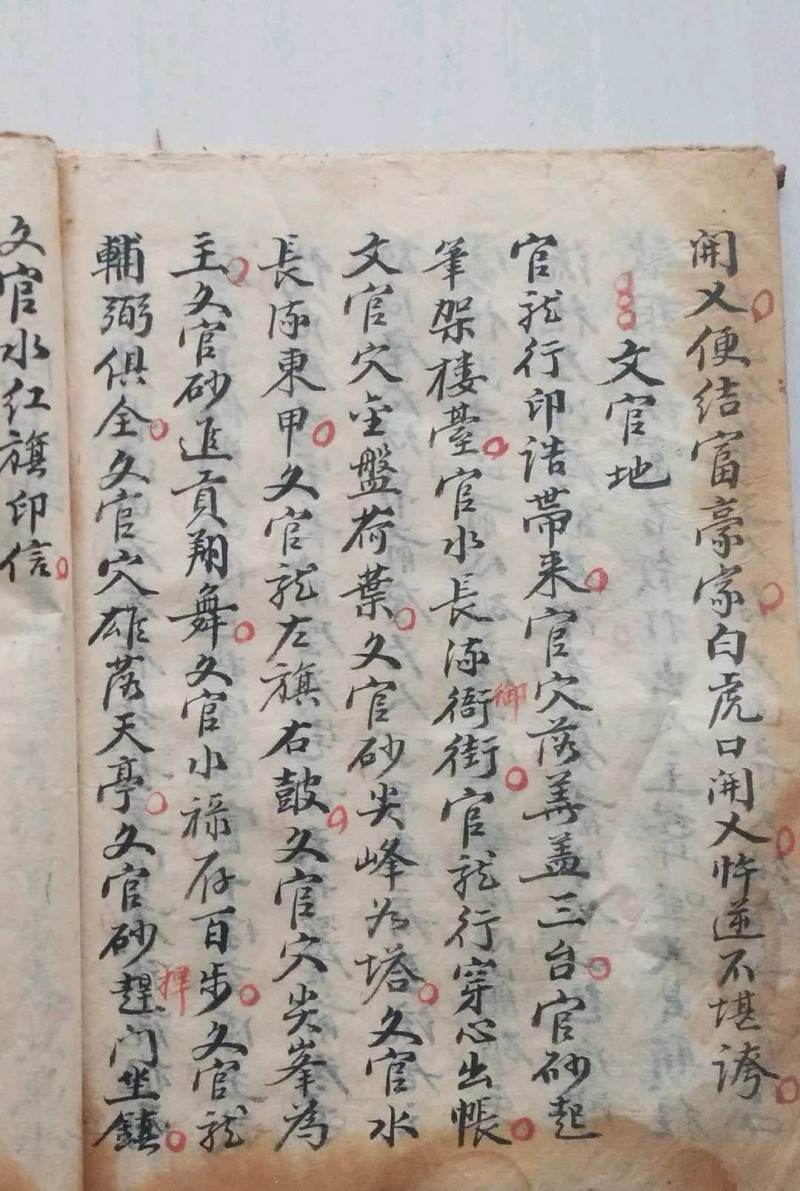 開乂便结富豪家白虎口開乂忤逆不堪誇
文官地
官龍行印誥帶来官穴落華盖三台官砂起
筆架楼臺官水長流衙街官龍行穿心出帳
御
文官穴金盤荷葉文官砂尖峰为塔文官水
長流東甲文官龍左旗右鼓文官穴尖峯為
主文官砂進貢翔舞文官水禄存百步文官龍
輔弼俱全文官穴雄落天亭文官砂趕门坐鎮
捍
文官水红旗印信